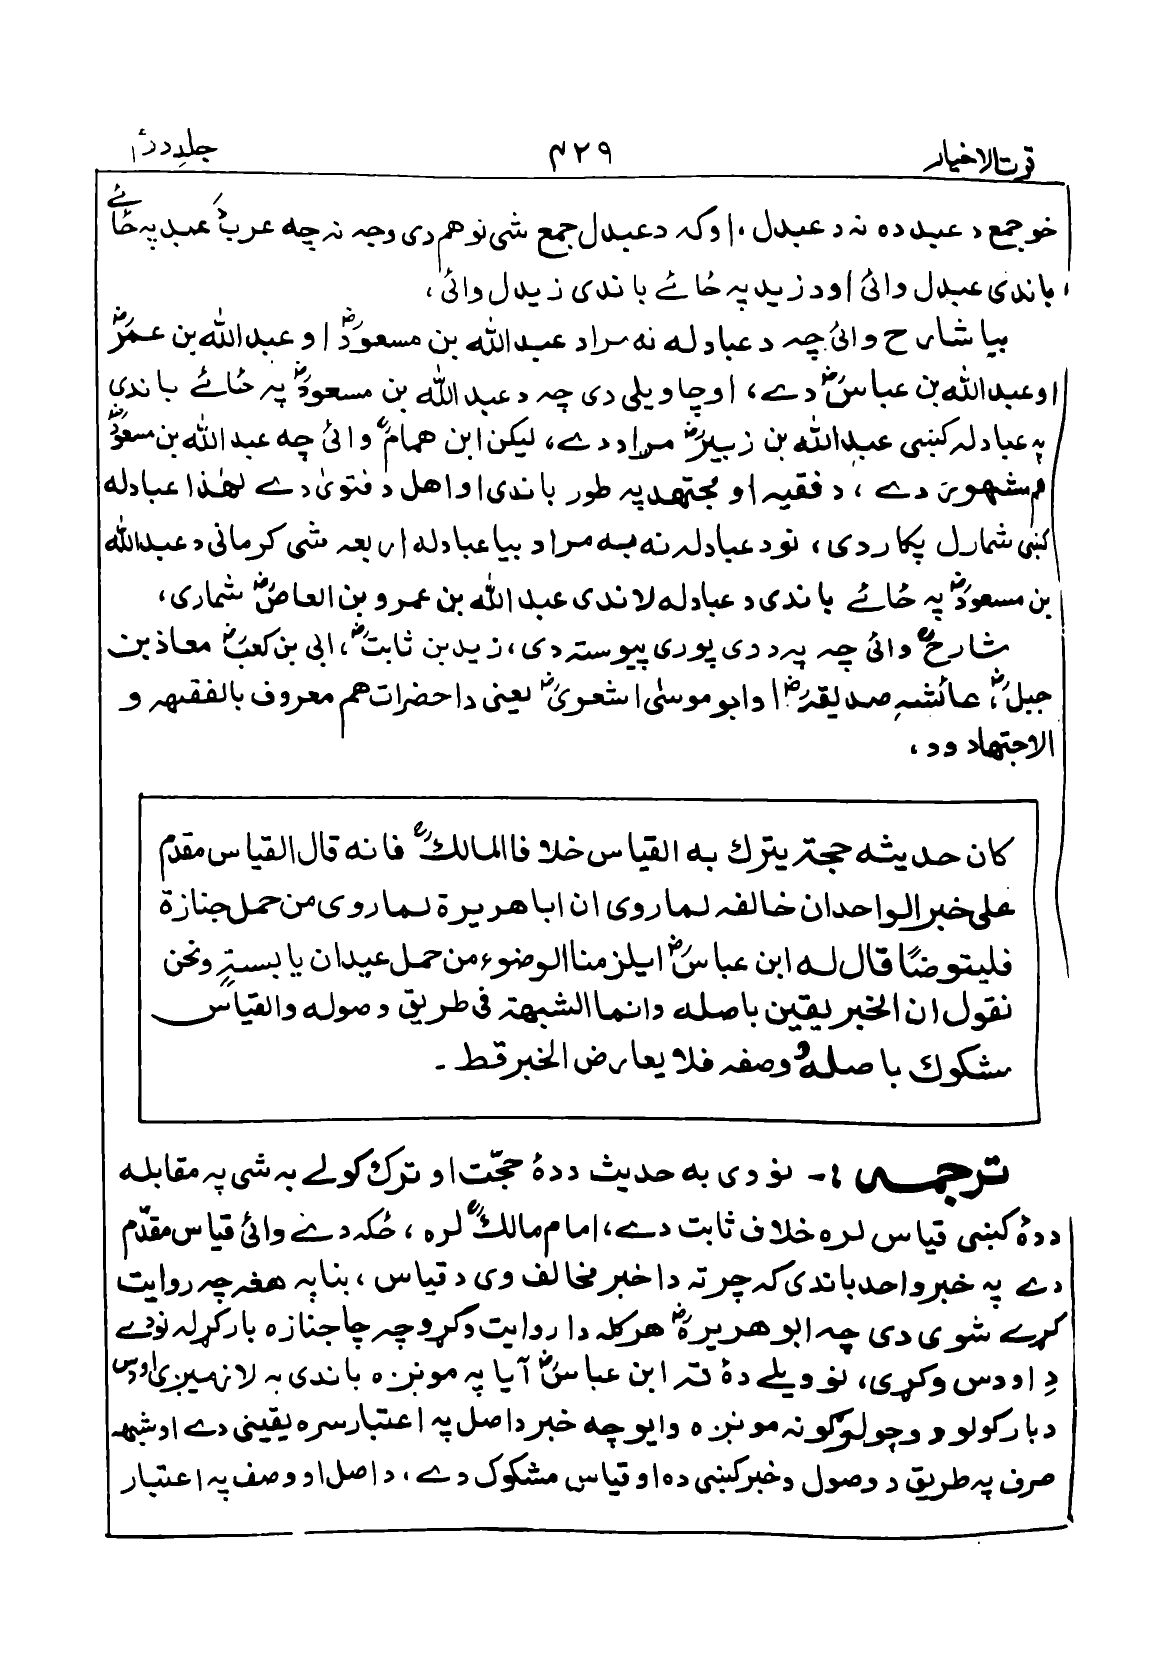 قرت الاخیار ۴۲۹ جلد دوئم
خو جمع د عبد ده نه د عبدل ، او که د عبدل جمع شی نو هم دی وجه نه چه عرب عبد په ځائے
باندی عبدل وائی او د زید په ځائے باندی زیدل وائی ،
بیا شارح وائی چه د عبادله نه مراد عبد الله بن مسعودؓ او عبد الله بن عمرؓ
او عبد الله بن عباسؓ دے ، او چا ویلی دی چه د عبد الله بن مسعودؓ په ځائے باندی
په عبادله کښی عبد الله بن زبیرؓ مراد دے ، لیکن ابن همامؒ وائی چه عبد الله بن مسعودؓ
هم مشهور دے ، د فقیه او مجتهد په طور باندی او اهل د فتویٰ دے لهذا عبادله
کښی شمارل پکار دی ، نو د عبادله نه به مراد بیا عبادله اربعه شی کرمانی د عبد الله
بن مسعودؓ په ځائے باندی د عبادله لاندی عبد الله بن عمرو بن العاصؓ شماری ،
شارحؒ وائی چه په دی پوری پیوسته دی ، زید بن ثابتؓ ، ابی بن کعبؓ معاذ بن
جبلؓ ، عائشہ صدیقہؓ او ابو موسیٰ اشعریؓ یعنی دا حضرات هم معروف بالفقیهه و
الاجتهاد وو ،
کان حدیثه حجة یترك به القیاس خلافا لمالكؒ فانه قال القیاس مقدم
علی خبر الواحد ان خالفه لما روی ان ابا هریرة لما روی من حمل جنازة
فلیتوضأ قال له ابن عباسؓ ایلزمنا الوضوء من حمل عیدان یابسة ونحن
نقول ان الخبر یقین باصله وانما الشبهة فی طریق وصوله والقیاس
مشکوك باصله ووصفه فلا یعارض الخبر قط ۔
ترجمه :- نو وی به حدیث ددهٔ حجّت او ترک کولے به شی په مقابله
ددهٔ کښی قیاس لره خلاف ثابت دے ، امام مالکؒ لره ، ځکه دے وائی قیاس مقدّم
دے په خبر واحد باندی که چرته دا خبر مخالف وی د قیاس ، بنا په هغه چه روایت
کړے شوی دی چه ابو هریرهؓ هر کله دا روایت وکړو چه چا جنازه بار کړله نو دے
دِ اودس وکړی ، نو ویلے دهٔ ته ابن عباسؓ آیا په مونږه باندی به لازمیږی اودس
د بار کولو د وچو لرګو نه مونږه وایو چه خبر د اصل په اعتبار سره یقینی دے او شبهه
صرف په طریق د وصول د خبر کښی ده او قیاس مشکوک دے ، د اصل او وصف په اعتبار